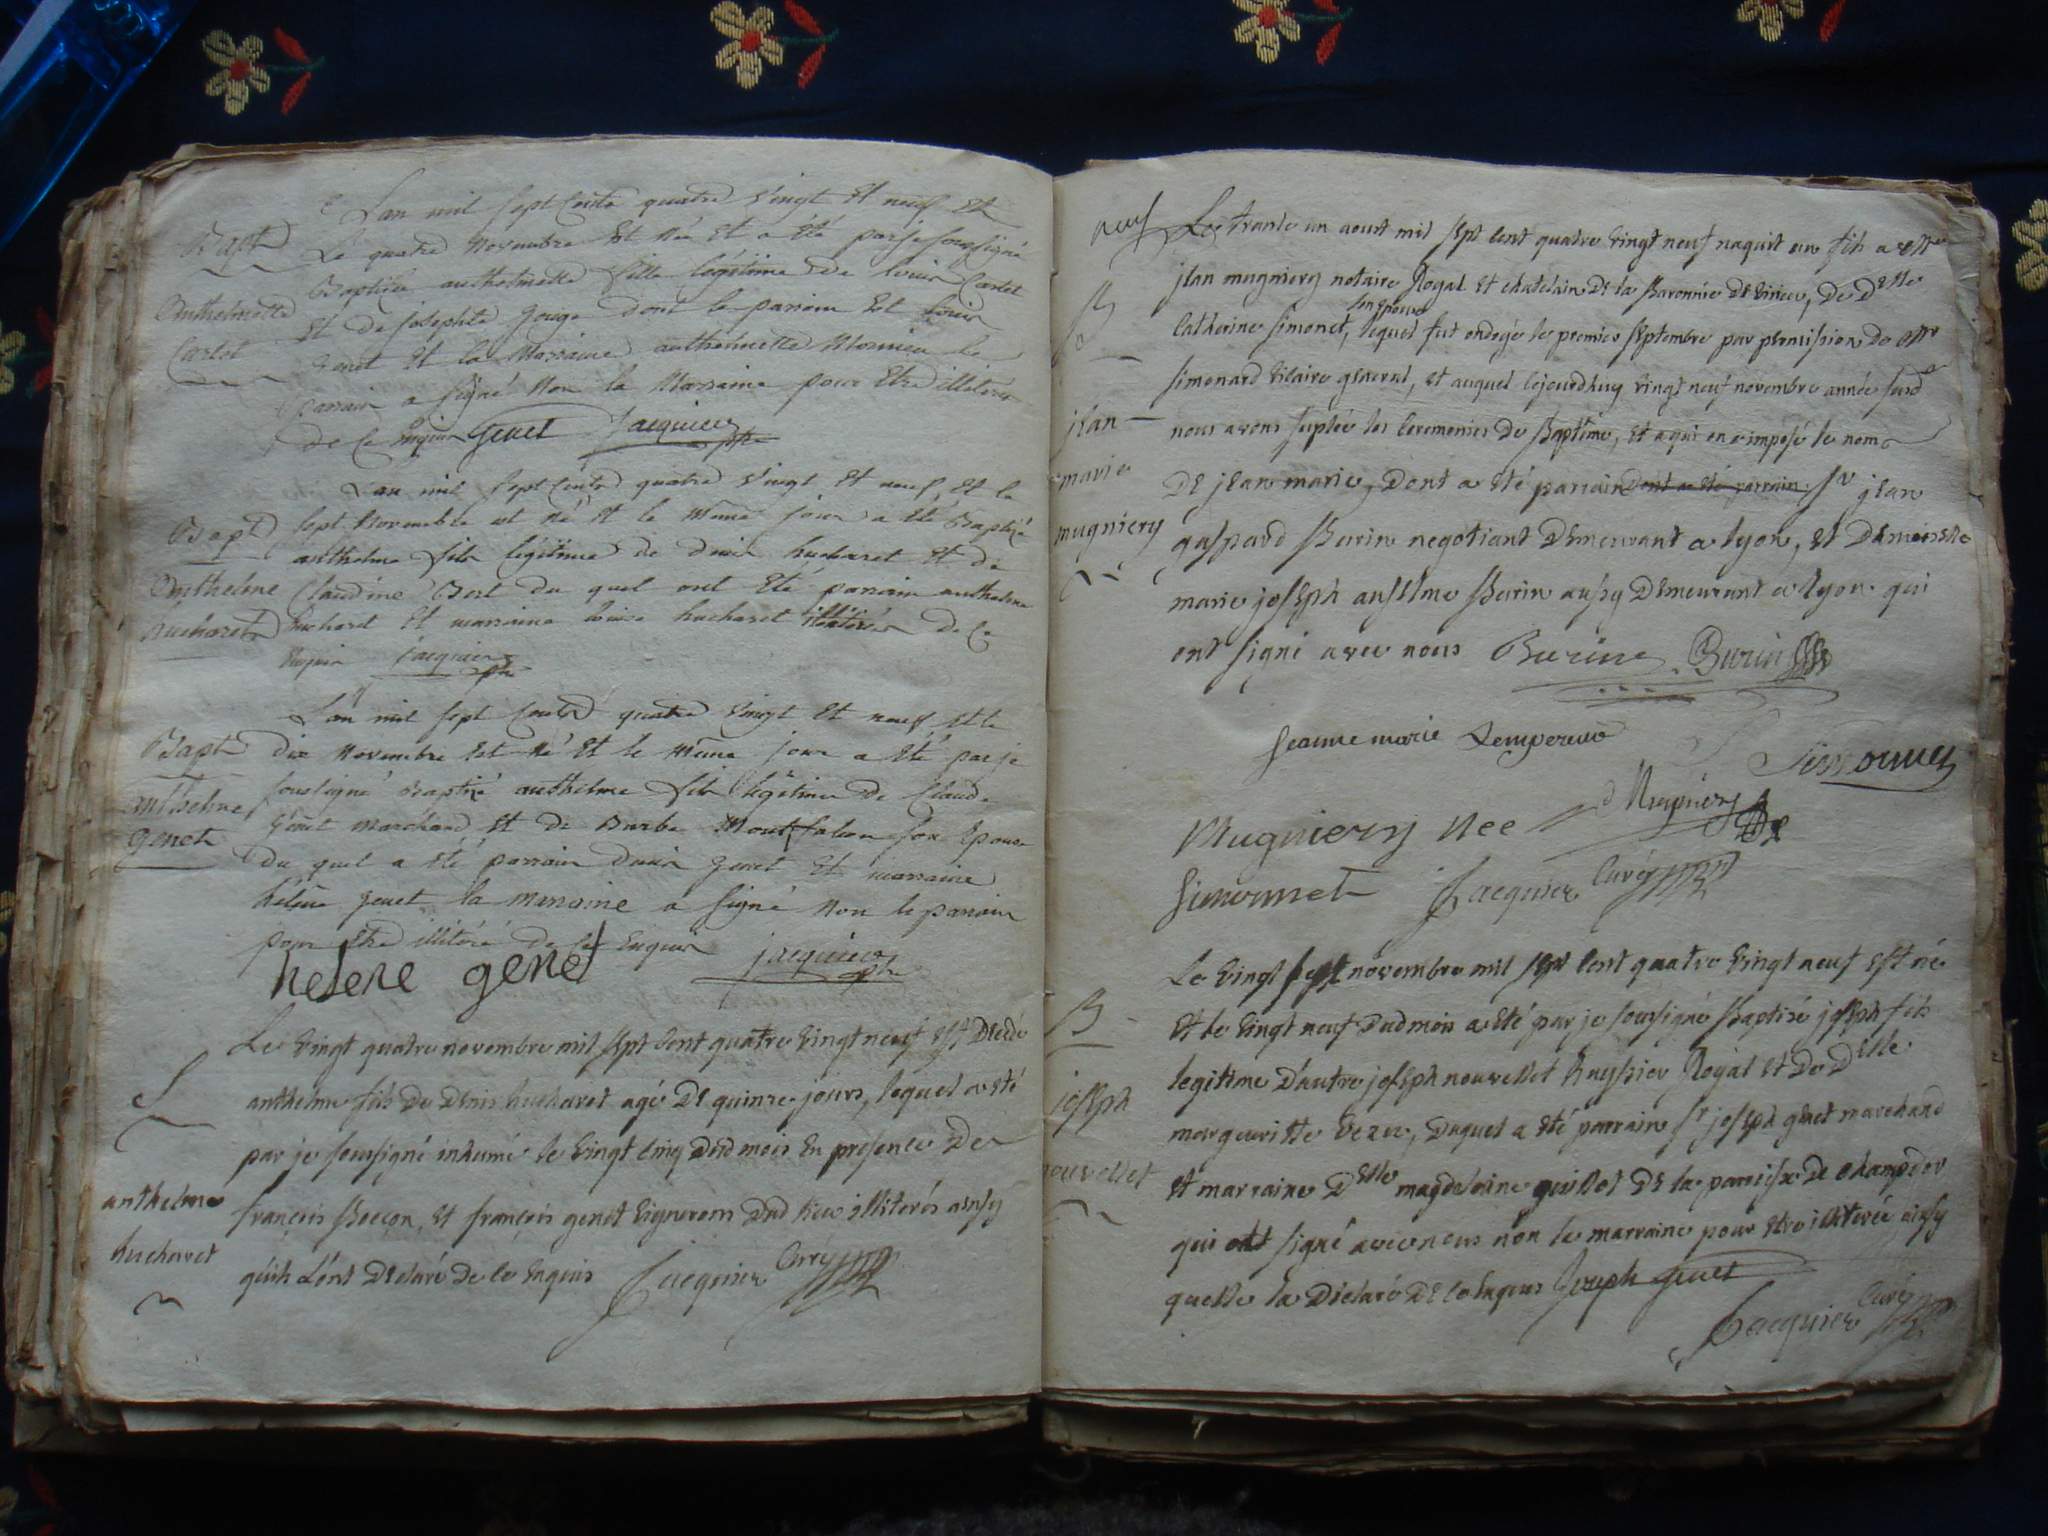 Lan mil sept cents quatre vingt et neuf et
Bapt le quatre novembre est née et a été par je soussigné
Baptisée anthelmette fille légitime de louis Carlet
Anthelmette
et de josephte gouge dont le parrain est louis
Carlet
genet et la marraine anthelmette Monnieu le
parrain a signé non la marraine pour etre illiterée
de ce enquis Genet Jacquier ptre
Lan mil sept cents quatre vingt et neuf et le
Bapt sept novembre est né et le même jour a été Baptisé
anthelme fils légitime de denis hucharet et de
Anthelme Claudine Bert du quel ont été parrain anthelme
hucharet hucharet et marraine louise hucharet illiterés de ce
enquis Jacquier ptre
Lan mil sept cents quatre vingt et neuf et le
Bapt dix novembre est né et le même jour a été par je
soussigné Baptisé anthelme fils légitime de Claude
anthelme
genet marchand et de Barbe Montfalcon son épouse
genet
du quel a été parrain denis genet et marraine
hélène genet la marraine a signé non le parrain
pour etre illiteré de ce enquis Jacquier ptre
helene genet
Le vingt quatre novembre mil sept cent quatre vingt neuf est decédé
S
anthelme fils de denis hucharet agé de quinze jours, lequel a été
par je soussigné inhumé le vingt cinq dud mois en presence de
anthelme
françois Boeçon, et françois genet vignerons dud lieu illiterés ainsy
hucharet
quils l'ont declaré de ce enquis Jacquier Curé
neuf Le trante un aoust mil sept cent quatre vingt neuf naquit un fils a Mtre
jean mugniery notaire Royal et chatelain de la Baronnie de virieu, de Delle
B
son epouse
catherine simonet, lequel fut ondoyé le premier septembre par permission de Mr
simonard vicaire general, et auquel cejourdhuy vingt neuf novembre année susde
jean
nous avons suplée les ceremonies du Baptême, et a qui on a imposé le nom
marie
de jean marie, dont a été parrain dont a été parrain Sr jean
mugniery
gaspard Burin negotiant demeurant a lyon, et demoiselle
marie joseph anselme Burin aussy demeurant a lyon qui
ont signé avec nous Burin Burin
jeanne marie Lempereur Simonet
Mugniery nee d Mugniery
Simonnet Jacquier Curé
Le vingt sept novembre mil sept cent quatre vingt neuf est né
B et le vingt neuf dud mois a été par je soussigné Baptisé joseph fils
legitime d'autre joseph nouvellet huyssier Royal et de Delle
joseph
margueritte vezu, duquel a été parrain Sr joseph genet marchand
nouvellet
et marraine Delle magdelaine guillot de la parroisse de champdor
qui ont signé avec nous non la marraine pour etre illiterée ainsy
quelle la declaré de ce enquis Joseph Genet
Jacquier Curé